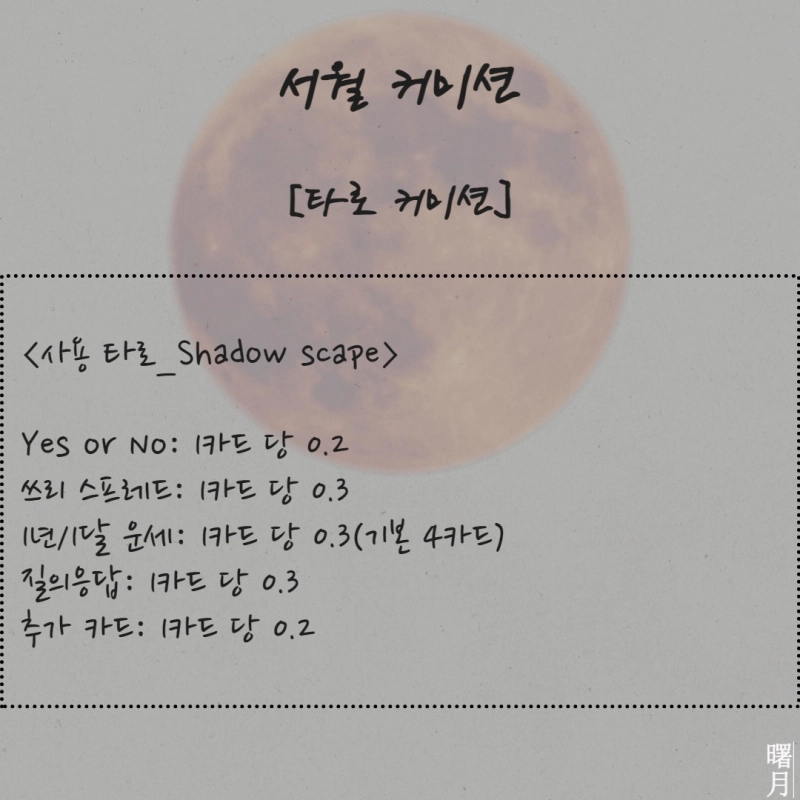 서월 커미션
[타로 커미션]
<사용 타로_Shadow scape>
Yes or No: 1카드 당 0.2
쓰리 스프레드: 1카드 당 0.3
1년/1달 운세: 1카드 당 0.3(기본 4카드)
질의응답: 1카드 당 0.3
추가 카드: 1카드 당 0.2
曙月